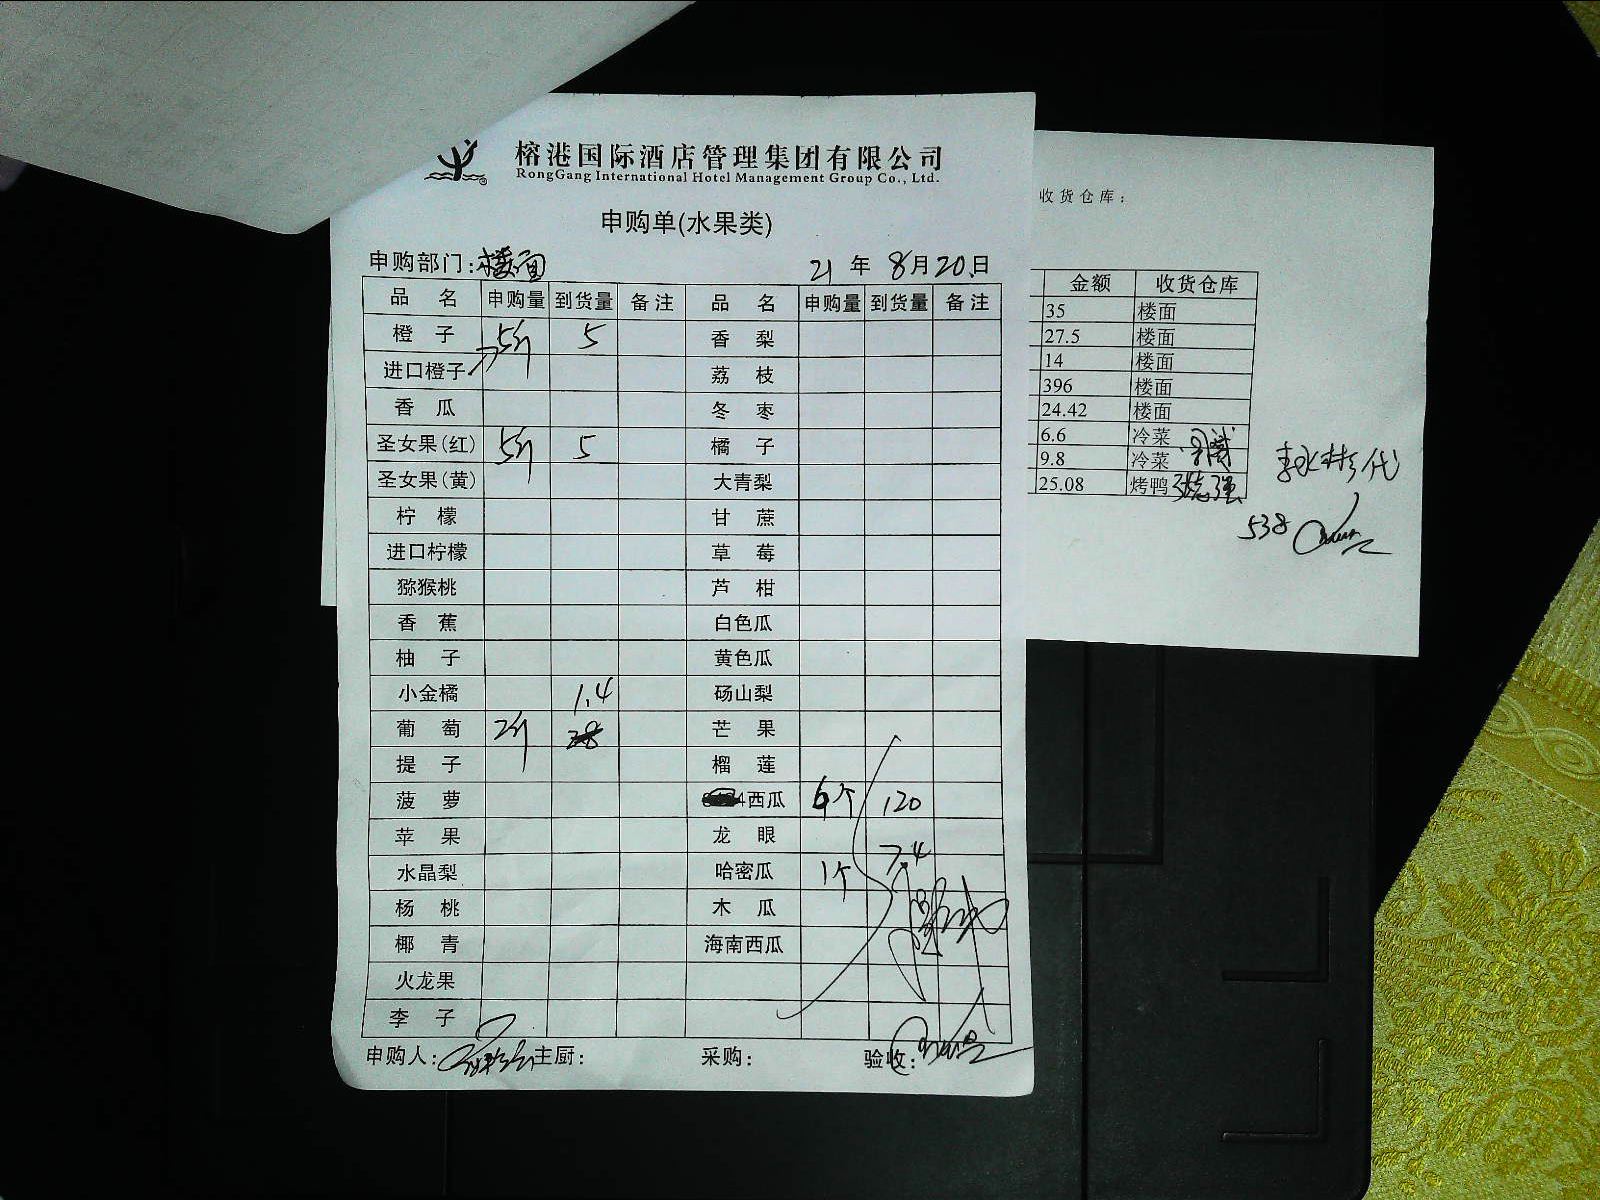 榕港国际酒店管理集团有限公司
RongGang International Hotel Management Group Co., Ltd.
申购单(水果类)
申购部门:楼面 21年8月20日
品名 申购量 到货量 备注 品名 申购量 到货量 备注
橙子 5斤 5 香梨
进口橙子 荔枝
香瓜 冬枣
圣女果(红) 5斤 5 橘子
圣女果(黄) 大青梨
柠檬 甘蔗
进口柠檬 草莓
猕猴桃 芦柑
香蕉 白色瓜
柚子 黄色瓜
小金橘 1.4 砀山梨
葡萄 2斤 芒果
提子 榴莲
菠萝 西瓜 6个 120
苹果 龙眼
水晶梨 哈密瓜 1个 7.4
杨桃 木瓜
椰青 海南西瓜
火龙果
李子
申购人: 主厨: 采购: 验收:
收货仓库:
金额 收货仓库
35 楼面
27.5 楼面
14 楼面
396 楼面
24.42 楼面
6.6 冷菜
9.8 冷菜
25.08 烤鸭
538